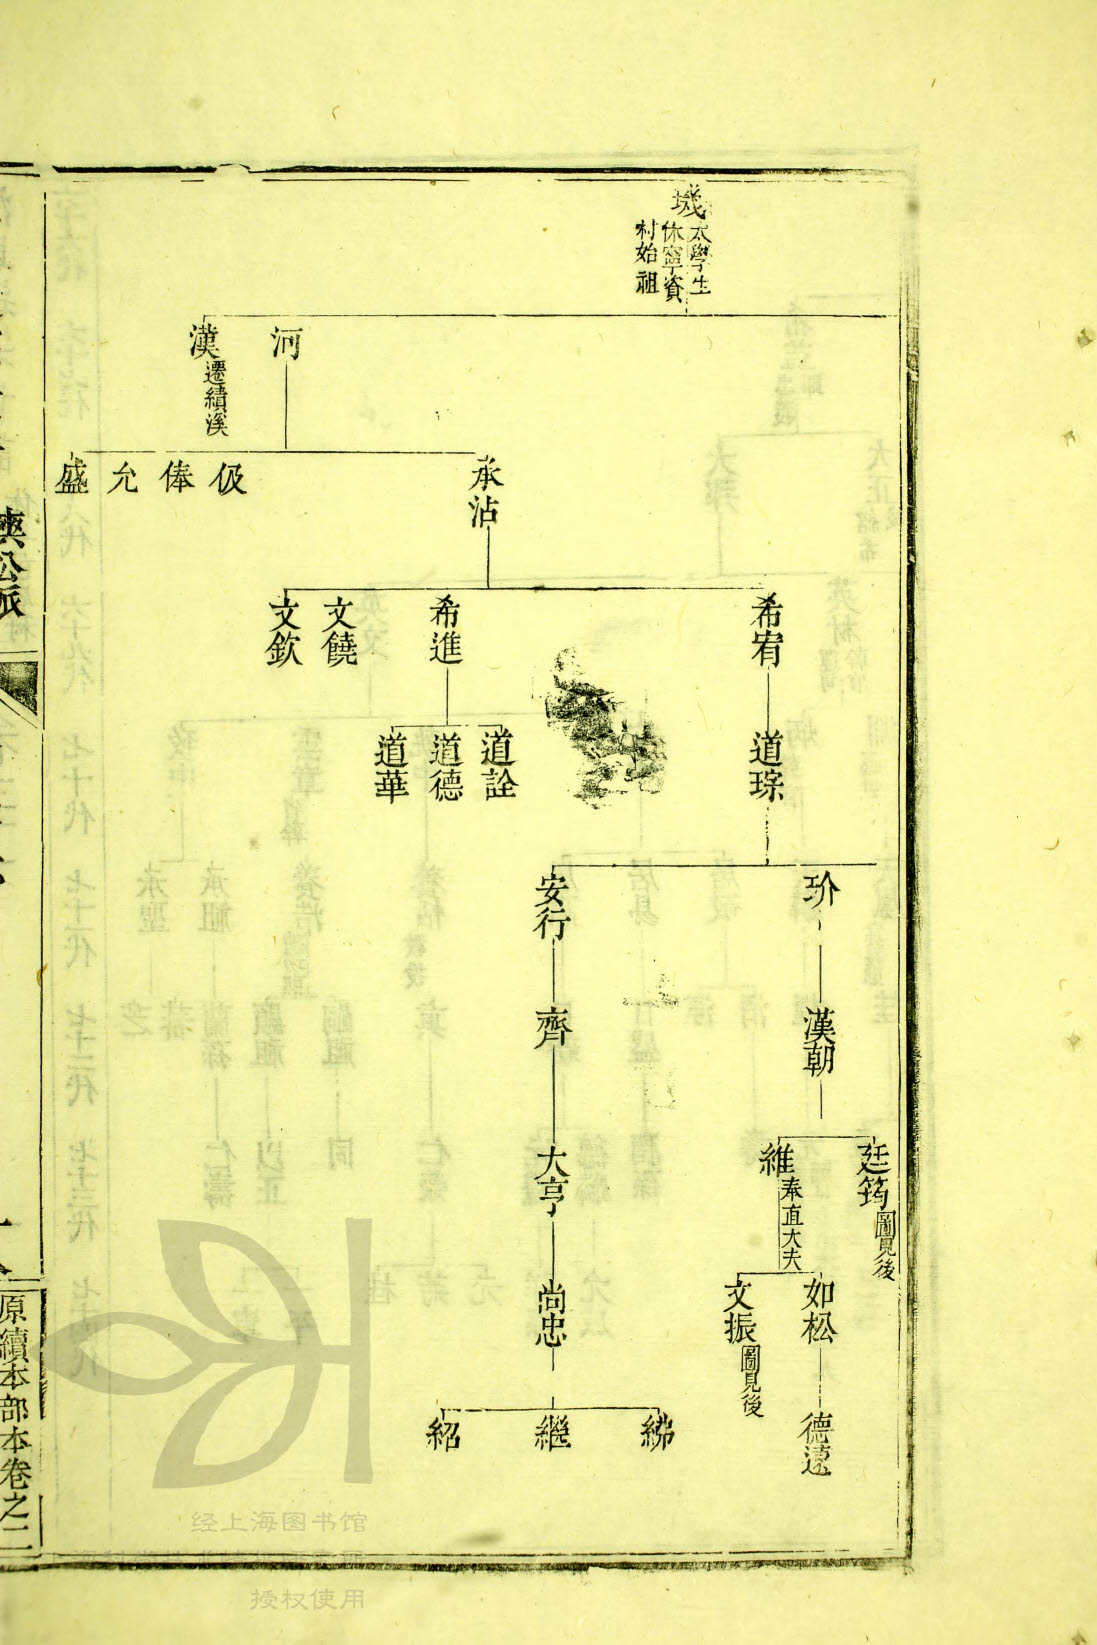 璣太學生
休寧資
村始祖
河
漢遷績溪
承沾
伋
俸
允
盛
希宥
希進
文饒
文欽
道琮
道詮
道德
道華
玠
安行
漢朝
齊
廷筠圖見後
維奉直大夫
大亨
如松
文振圖見後
尚忠
德遠
綈
繼
紹
公派
原續本部本卷之二
经上海图书馆
授权使用